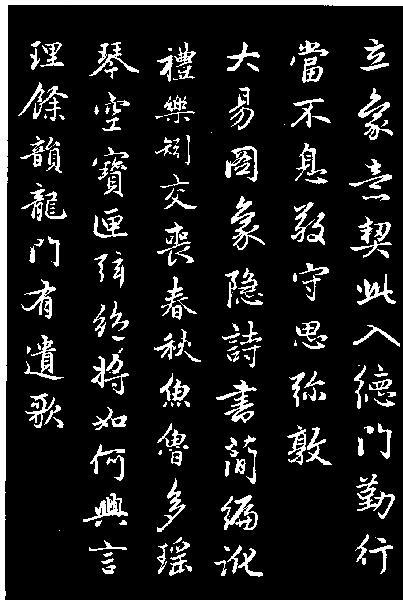 立象意契此入德門勤行
當不息敬守思弥敦
大易圖象隐詩書簡編訛
禮樂矧交喪春秋魚魯多瑶
琴空寶匣弦絶將如何興言
理餘韻龍門有遺歌